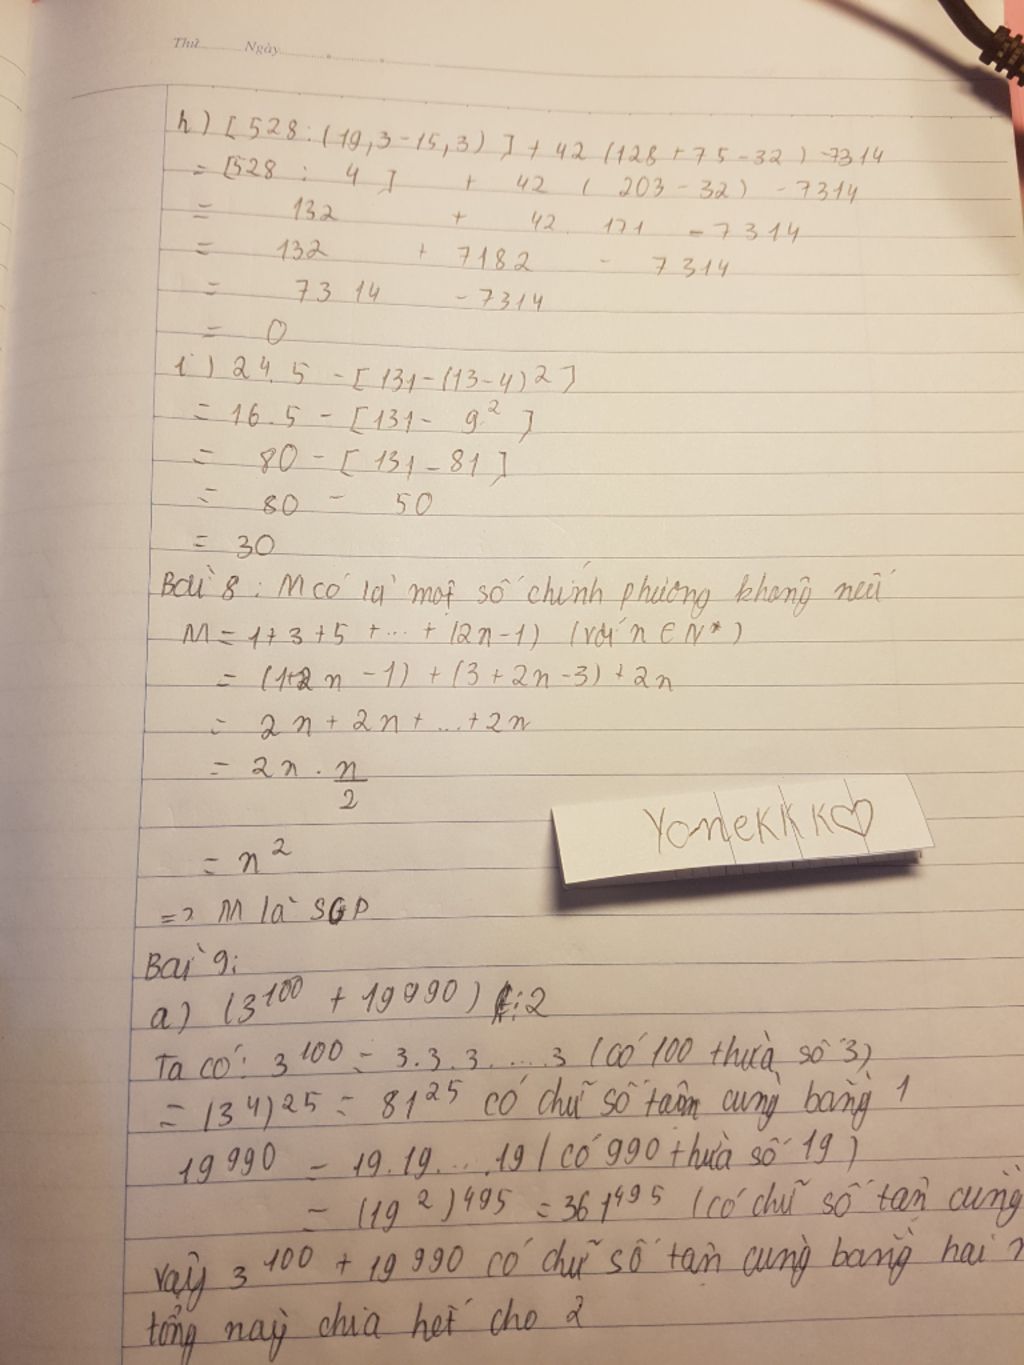 Thứ Ngày
h) [528:(19,3-15,3)]+42(128+75-32)-7314
= [528 : 4] + 42 (203-32) -7314
= 132 + 42. 171 -7314
= 132 + 7182 - 7314
= 7314 -7314
= 0
i) 2⁴.5 -[131-(13-4)²]
= 16.5 -[131- 9²]
= 80 -[131-81]
= 80 - 50
= 30
Bài 8: M có là một số chính phương không nếu
M=1+3+5+...+(2n-1) (với n∈N*)
= (1+2n-1)+(3+2n-3)+2n
= 2n+2n+...+2n
= 2n . n/2
= n²
=> M là SCP
YonekKK♡
Bài 9:
a) (3¹⁰⁰ + 19⁹⁹⁰) ⋮2
Ta có: 3¹⁰⁰ = 3.3.3....3 (có 100 thừa số 3)
= (3⁴)²⁵ = 81²⁵ có chữ số tận cùng bằng 1
19⁹⁹⁰ = 19.19....19 (có 990 thừa số 19)
= (19²)⁴⁹⁵ = 361⁴⁹⁵ (có chữ số tận cùng
vậy 3¹⁰⁰ + 19⁹⁹⁰ có chữ số tận cùng bằng hai
tổng này chia hết cho 2